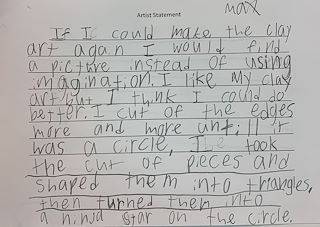 max
Artist Statement
If I could make the clay
art again I would find
a picture instead of using
imagination. I like my clay
art but I think I could do
better. I cut of the edges
more and more until it
was a circle, I took
the cut of pieces and
shaped them into triangles,
then turned them into
a ninja star on the circle.